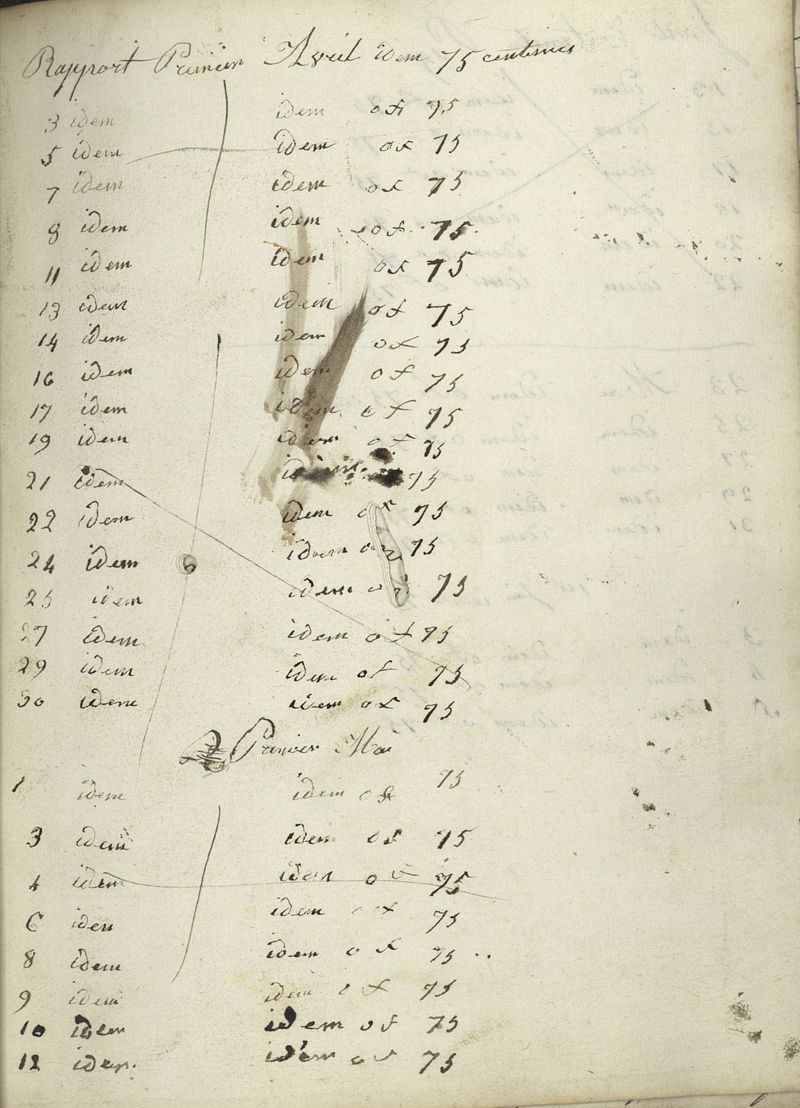 Rapport Primier Avril idem 75 centimes
3 idem idem o f 75
5 idem idem o f 75
7 idem idem o f 75
8 idem idem o f 75
11 idem idem o f 75
13 idem idem o f 75
14 idem idem o f 75
16 idem idem o f 75
17 idem idem o f 75
19 idem idem o f 75
21 idem idem 75
22 idem idem o f 75
24 idem idem o f 75
25 idem idem o f 75
27 idem idem o f 75
29 idem idem o f 75
30 idem idem o f 75
Primier Mai
1 idem idem o f 75
3 idem idem o f 75
4 idem idem o f 75
6 idem idem o f 75
8 idem idem o f 75
9 idem idem o f 75
10 idem idem o f 75
12 idem idem o f 75